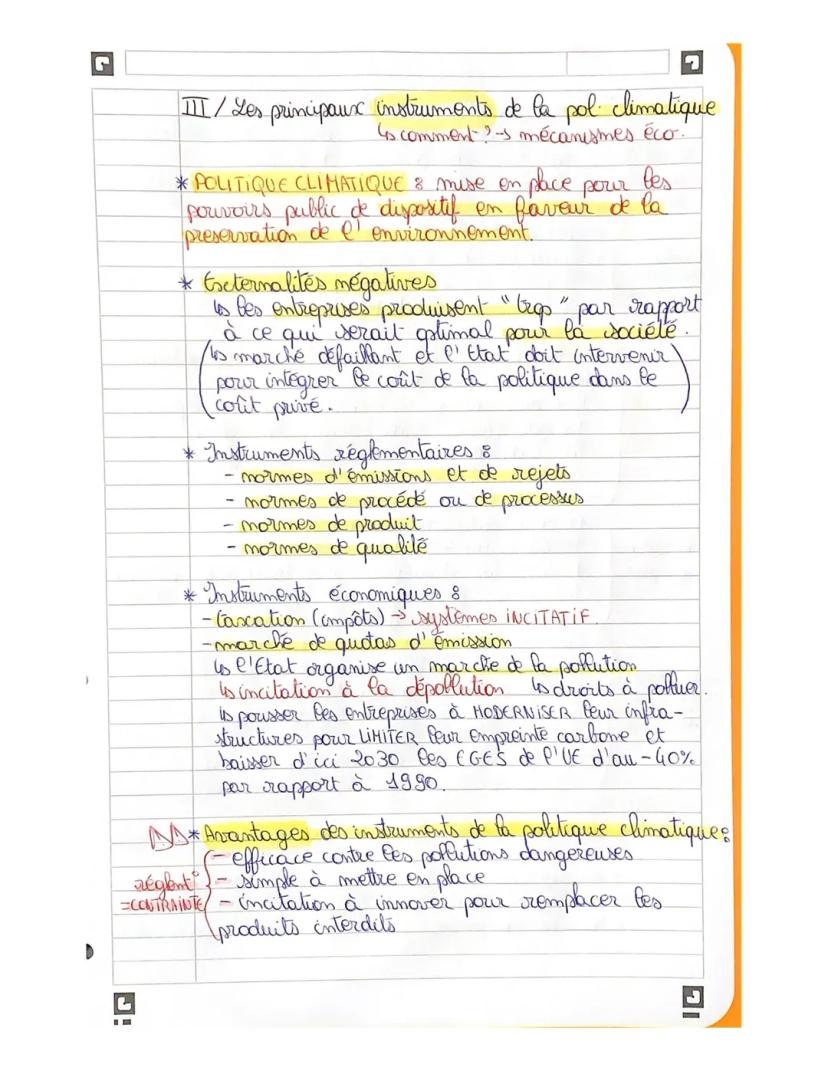 III / Les principaux instruments de la pol. climatique
↳ comment ? → mécanismes éco.
* POLITIQUE CLIMATIQUE : mise en place pour les
pouvoirs public de dispositif en faveur de la
preservation de l'environnement.
* Externalités négatives
↳ les entreprises produisent "trop" par rapport
à ce qui serait optimal pour la société.
↳ marché défaillant et l'Etat doit intervenir
pour intégrer le coût de la politique dans le
coût privé.
* Instruments réglementaires :
- normes d'émissions et de rejets
- normes de procédé ou de processus
- normes de produit
- normes de qualité
* Instruments économiques :
- taxation (impôts) → systèmes INCITATIF.
- marché de quotas d'émission
↳ l'Etat organise un marché de la pollution
↳ incitation à la dépollution ↳ droits à polluer.
↳ pousser les entreprises à MODERNISER leur infra-
structures pour LIMITER leur empreinte carbone et
baisser d'ici 2030 les EGES de l'UE d'au -40%
par rapport à 1990.
* Avantages des instruments de la politique climatique :
- efficace contre les pollutions dangereuses
réglent° - simple à mettre en place
=CONTRAINTE - incitation à innover pour remplacer les
produits interdits